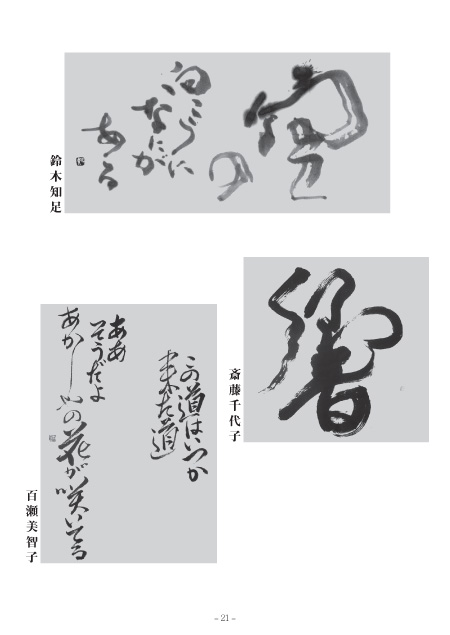 空の
向こうに
なにが
ある
鈴木知足
響
斎藤千代子
この道はいつか
来た道
ああ
そうだよ
あかしやの花が咲いてる
百瀬美智子
– 21 –